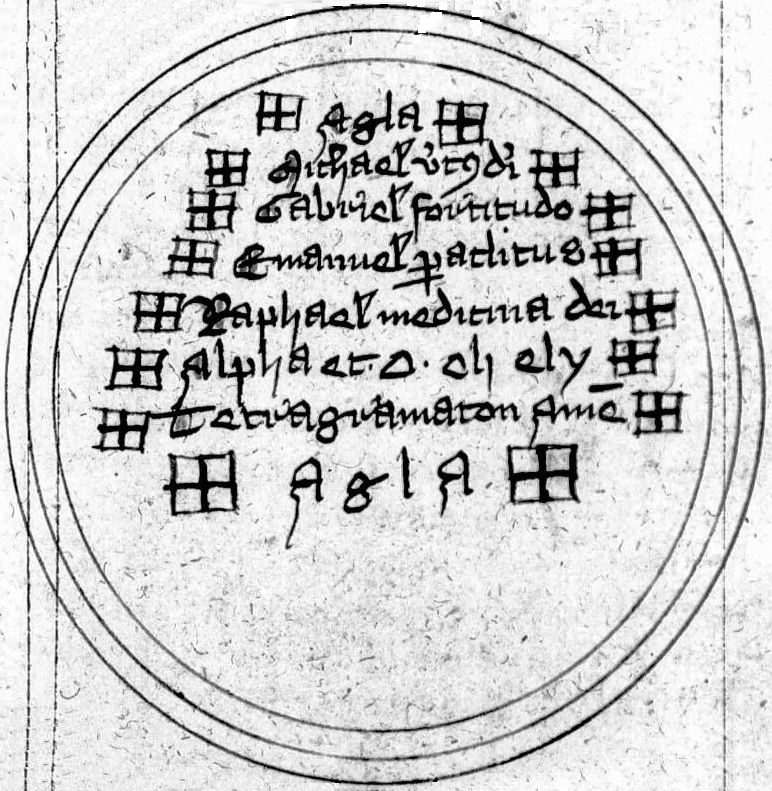 Agla
Michael v̉t9 di
Gabriel fortitudo
Emanuel ꝑaclitus
Raphael medicina dei
Alpha et · O · eli ely
Tetragramaton Amē
A g l A